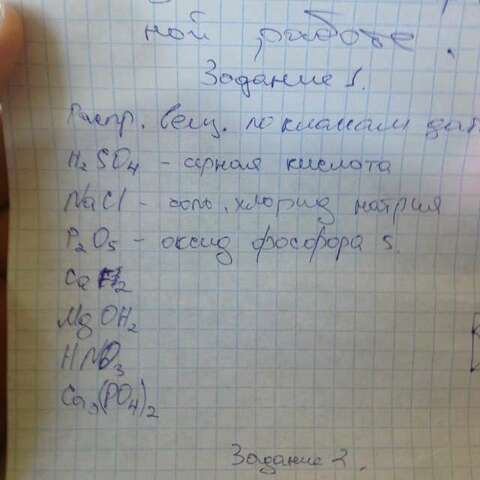 ной работе.
Задание 1.
Распр. вещ. по класам
H₂SO₄ - серная кислота
NaCl - соль, хлорид натрия
P₂O₅ - оксид фосфора 5.
MgOH₂
HNO₃
Ca₃(PO₄)₂
Задание 2.